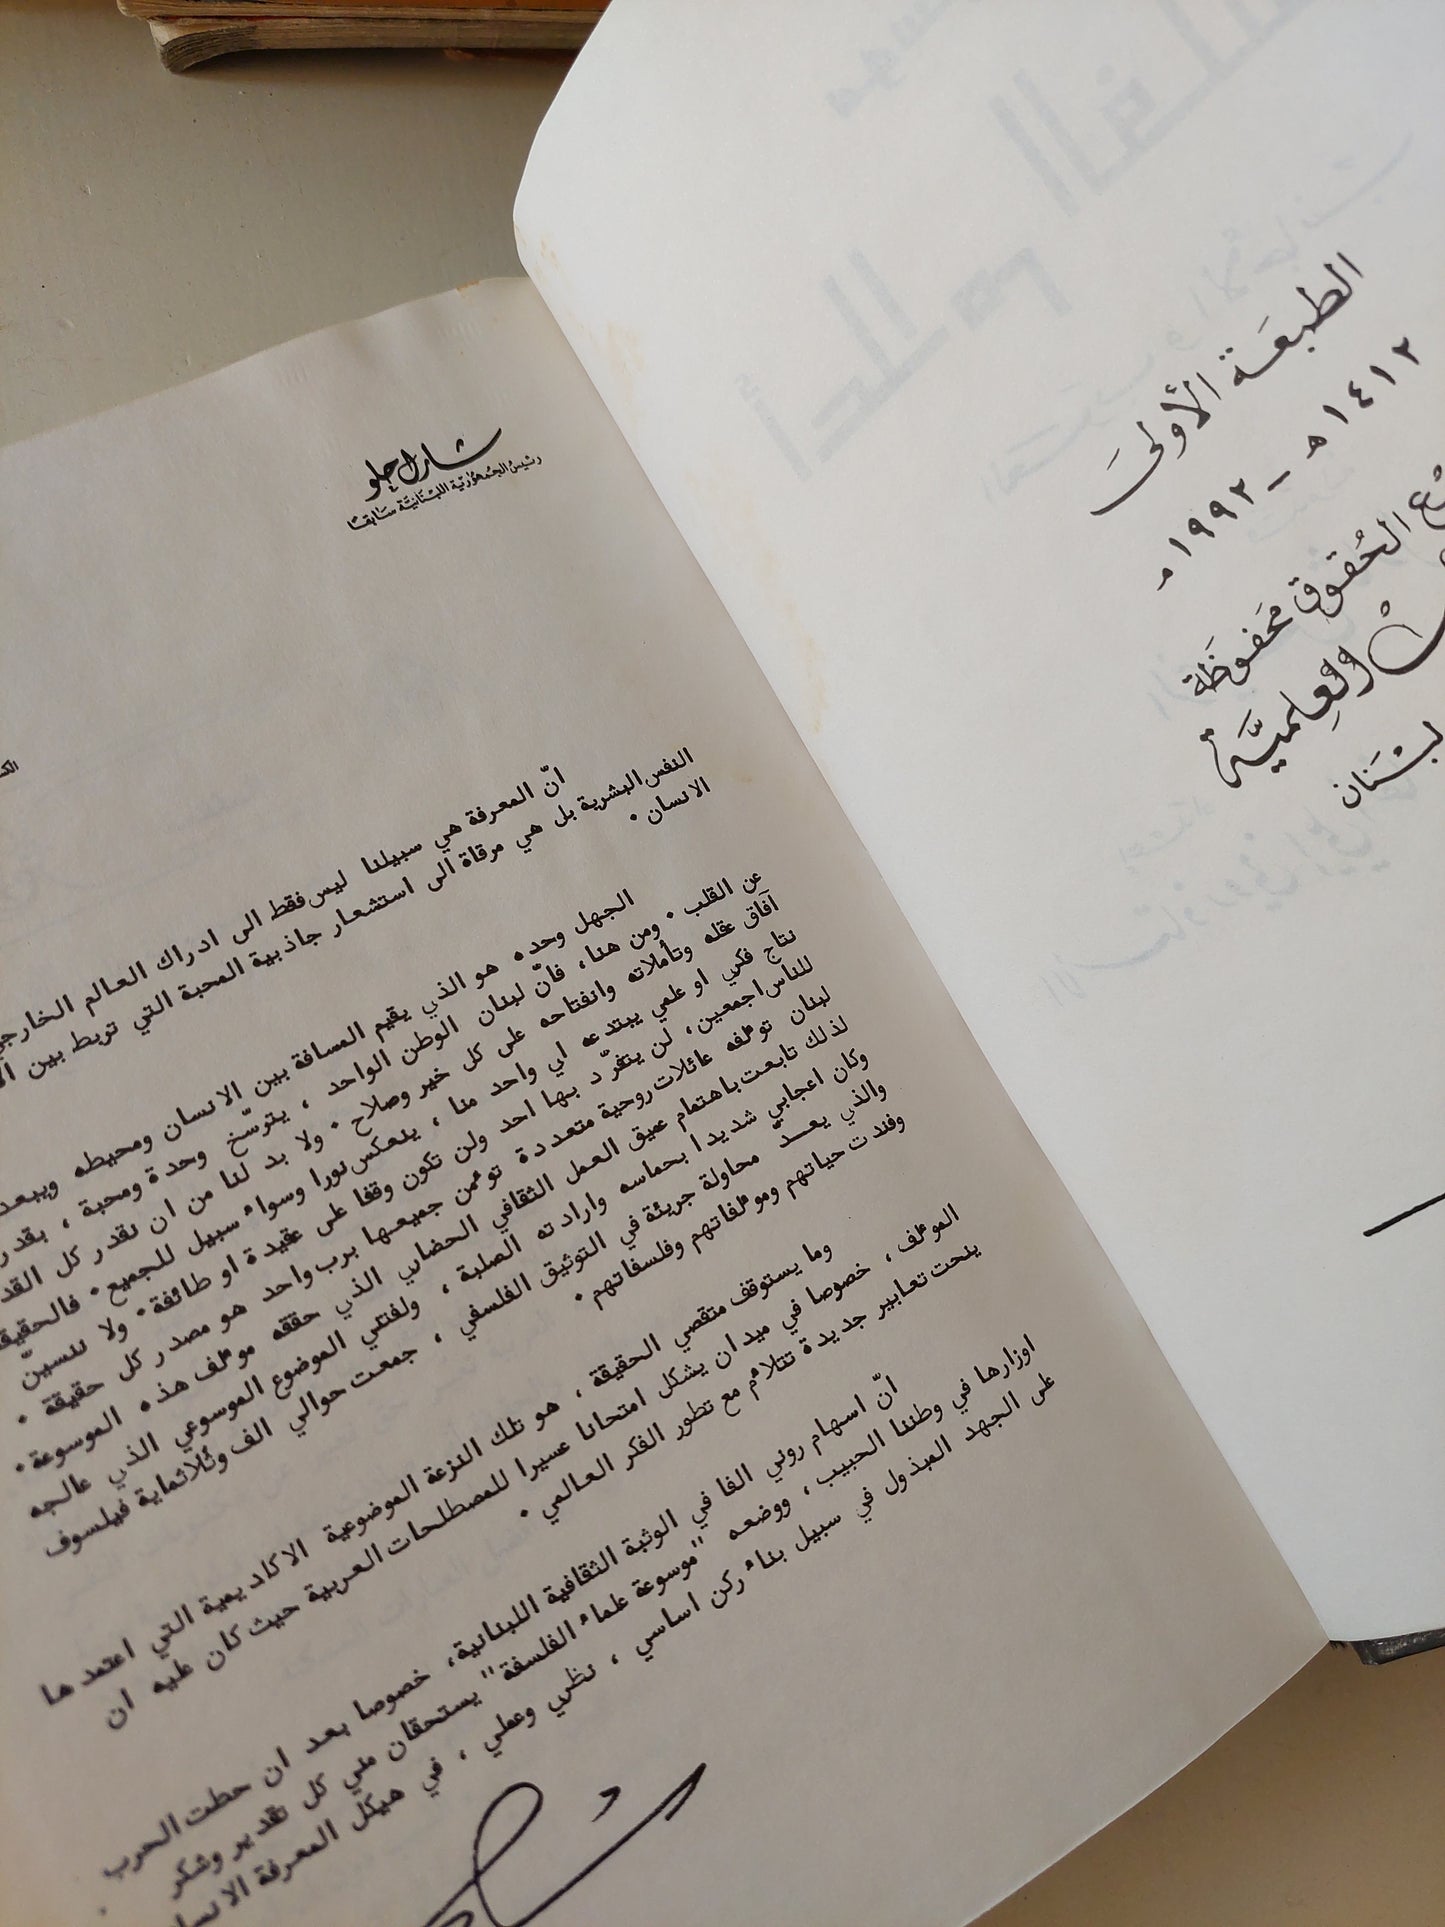 الطبعة الأولى
١٤١٢ ه - ١٩٩٢ م
الحقوق محفوظة
والعلمية
لبنان
شارل حلو
رئيس الجمهورية اللبنانية سابقا
انّ المعرفة هي سبيلنا ليس فقط الى ادراك العالم الخارجي
النفس البشرية بل هي مرقاة الى استشعار جاذبية المحبة التي تربط بين
الانسان .
الجهل وحده هو الذي يقيم المسافة بين الانسان ومحيطه ويبعد
عن القلب . ومن هنا، فانّ لبنان الوطن الواحد ، يترسّخ وحدة ومحبة ، بقدر
آفاق عقله وتأملاته وانفتاحه على كل خير وصلاح . ولا بد لنا من ان نقدر كل القدر
نتاج فكري او علمي يبتدعه اي واحد منا ، ينعكس نورا وسواء سبيل للجميع . فالحقيقة
للناس اجمعين، لن يتفرّد بها احد ولن تكون وقفا على عقيدة او طائفة . ولا ننسينّ
لبنان تؤلفه عائلات روحية متعددة تؤمن جميعها برب واحد هو مصدر كل حقيقة .
لذلك تابعت باهتمام عميق العمل الثقافي الحضاري الذي حققه مؤلف هذه الموسوعة .
وكان اعجابي شديدا بحماسه وارادته الصلبة ، ولفتني الموضوع الموسوعي الذي عالجه
والذي يعدّ محاولة جريئة في التوثيق الفلسفي ، جمعت حوالي الف وثلاثماية فيلسوف
وفندت حياتهم ومؤلفاتهم وفلسفاتهم .
وما يستوقف متقصي الحقيقة ، هو تلك النزعة الموضوعية الاكاديمية التي اعتمدها
المؤلف ، خصوصا في ميدان يشكل امتحانا عسيرا للمصطلحات العربية حيث كان عليه ان
ينحت تعابير جديدة تتلاءم مع تطور الفكر العالمي .
انّ اسهام روني الفا في الوثبة الثقافية اللبنانية، خصوصا بعد ان حطت الحرب
اوزارها في وطننا الحبيب ، ووضعه "موسوعة علماء الفلسفة" يستحقان مني كل تقدير وشكر
على الجهد المبذول في سبيل بناء ركن اساسي ، نظري وعملي ، في هيكل المعرفة